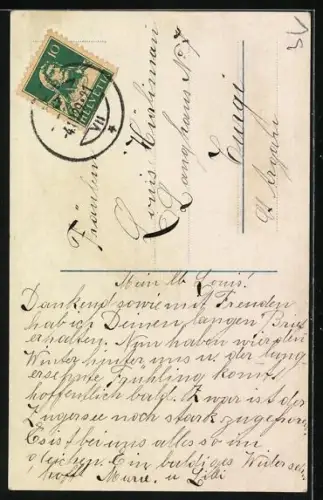 10
HELVETIA
VII
Fräulein
Louis
Langhaus No 7
Turgi
Kt Argau
Mein lb Louis!
Dankend sowie mit Freuden
hab ich Deinen langen Brief
erhalten. Nun haben wir den
Winter hinter uns u. der lang
ersehnte Frühling kommt
hoffentlich bald. Zwar ist der
Zugersee noch stark zugefroren
Es ist bei uns alles so im
gleichen. Ein baldiges Wiederseh
hofft Marie. u